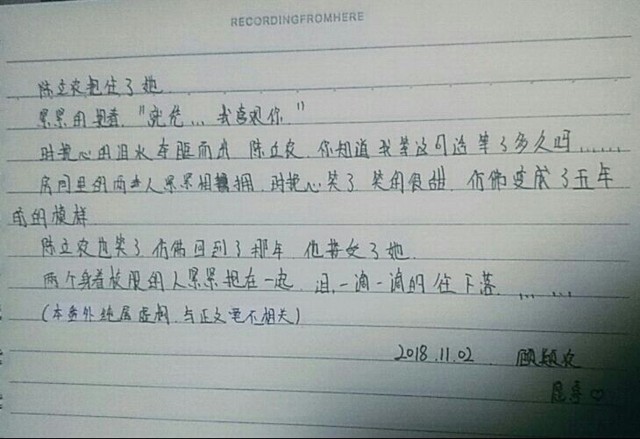 RECORDINGFROMHERE
陈立农抱住了她
累累的哭着 "完花... 我喜欢你"
时把心的泪水夺眶而出 陈立农 你知道我等这句话等了多久吗……
房间里的两人累累相拥 时把心笑了 笑的很甜 仿佛变成了五年
前的模样
陈立农也笑了 仿佛回到了那年 他
了她
两个身着校服的人累累抱在一起 泪一滴一滴的往下落 ……
(本番外纯属虚构 与正文毫不相关)
2018.11.02 顾
农